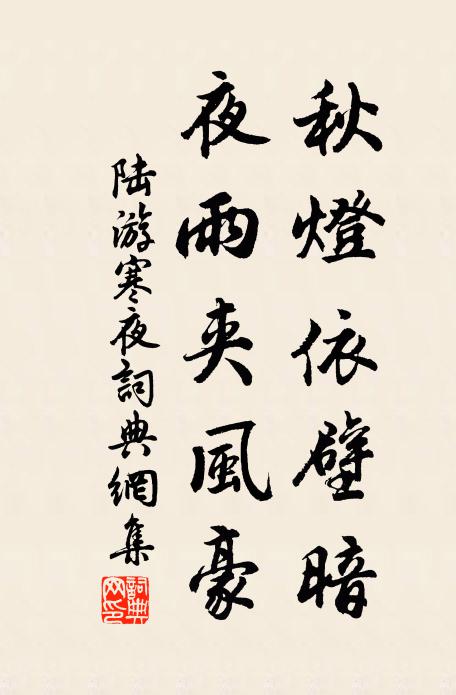 秋燈依壁暗
夜雨夾風豪
陸游寒夜詞典網集
詞典網印